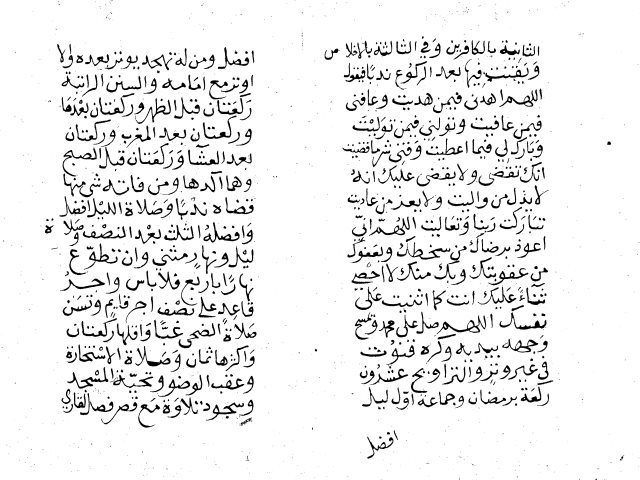 الثانية بالكافرين وفي الثالثة بالاخلاص
ويقنت فيها بعد الركوع ندبا فيقول
اللهم اهدني فيمن هديت وعافني
فيمن عافيت وتولني فيمن توليت
وبارك لي فيما اعطيت وقني شر ما قضيت
انك تقضي ولا يقضى عليك انه
لا يذل من واليت ولا يعز من عاديت
تباركت ربنا وتعاليت اللهم اني
اعوذ برضاك من سخطك وبعفوك
من عقوبتك وبك منك لا احصي
ثناء عليك انت كما اثنيت على
نفسك اللهم صل على محمد ويمسح
وجهه بيديه وكره قنوت
في غير وتر والتراويح عشرون
ركعة برمضان وجماعة اول ليل
افضل
افضل ومن له تهجد يوتر بعده ولا
اوتر مع امامه والسنن الراتبة
ركعتان قبل الظهر وركعتان بعدها
وركعتان بعد المغرب وركعتان
بعد العشا وركعتان قبل الصبح
وهما آكدها ومن فاته شي منها
قضاه ندبا وصلاة الليل افضل
وافضله الثلث بعد النصف وصلاة
ليل ونهار مثنى وان تطوع
نهارا باربع فلا باس واجر
قاعد على نصف اجر قايم وتسن
صلاة الضحى غبا واقلها ركعتان
واكثرها ثمان وصلاة الاستخارة
وعقب الوضو وتحية المسجد
وسجود تلاوة مع قصر فصل للقاري